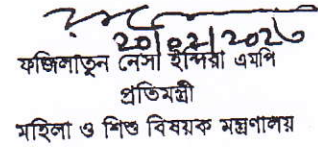 20/02/2020
ফজিলাতুন নেসা ইন্দিরা এমপি
প্রতিমন্ত্রী
মহিলা ও শিশু বিষয়ক মন্ত্রণালয়